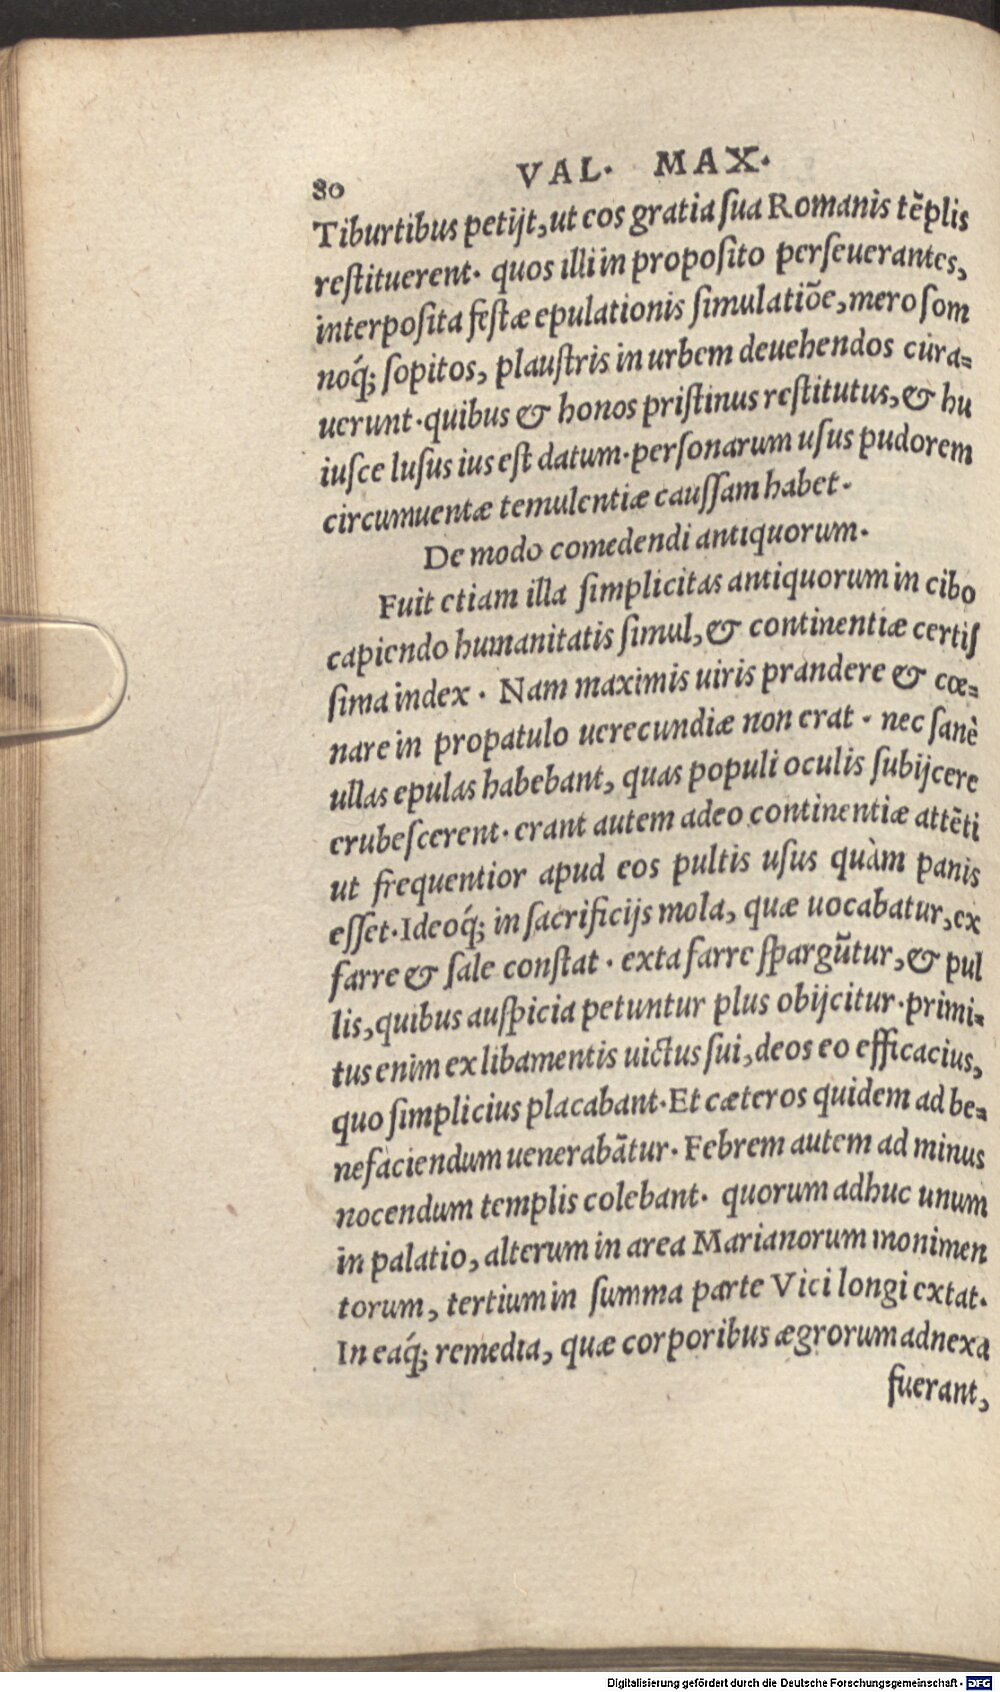 80
VAL. MAX.
Tiburtibus petijt, ut eos gratia ſua Romanis tẽplis
reſtituerent. quos illi in propoſito perſeuerantes,
interpoſita feſtæ epulationis ſimulatiõe, mero ſom
noq́; ſopitos, plauſtris in urbem deuehendos cura=
uerunt. quibus & honos priſtinus reſtitutus, & hu
iuſce luſus ius eſt datum. perſonarum uſus pudorem
circumuentæ temulentiæ cauſſam habet.
De modo comedendi antiquorum.
Fuit etiam illa ſimplicitas antiquorum in cibo
capiendo humanitatis ſimul, & continentiæ certiſ
ſima index. Nam maximis uiris prandere & cœ=
nare in propatulo uerecundiæ non erat. nec ſanè
ullas epulas habebant, quas populi oculis ſubijcere
erubeſcerent. erant autem adeo continentiæ attẽti
ut frequentior apud eos pultis uſus quàm panis
eſſet. Ideoq́; in ſacrificijs mola, quæ uocabatur, ex
farre & ſale conſtat. exta farre ſpargũtur, & pul
lis, quibus auſpicia petuntur plus obijcitur. primi=
tus enim ex libamentis uictus ſui, deos eo efficacius,
quo ſimplicius placabant. Et cæteros quidem ad be=
nefaciendum uenerabãtur. Febrem autem ad minus
nocendum templis colebant. quorum adhuc unum
in palatio, alterum in area Marianorum monimen
torum, tertium in ſumma parte Vici longi extat.
In eaq́; remedia, quæ corporibus ægrorum adnexa
fuerant,
Digitalisierung gefördert durch die Deutsche Forschungsgemeinschaft - DFG